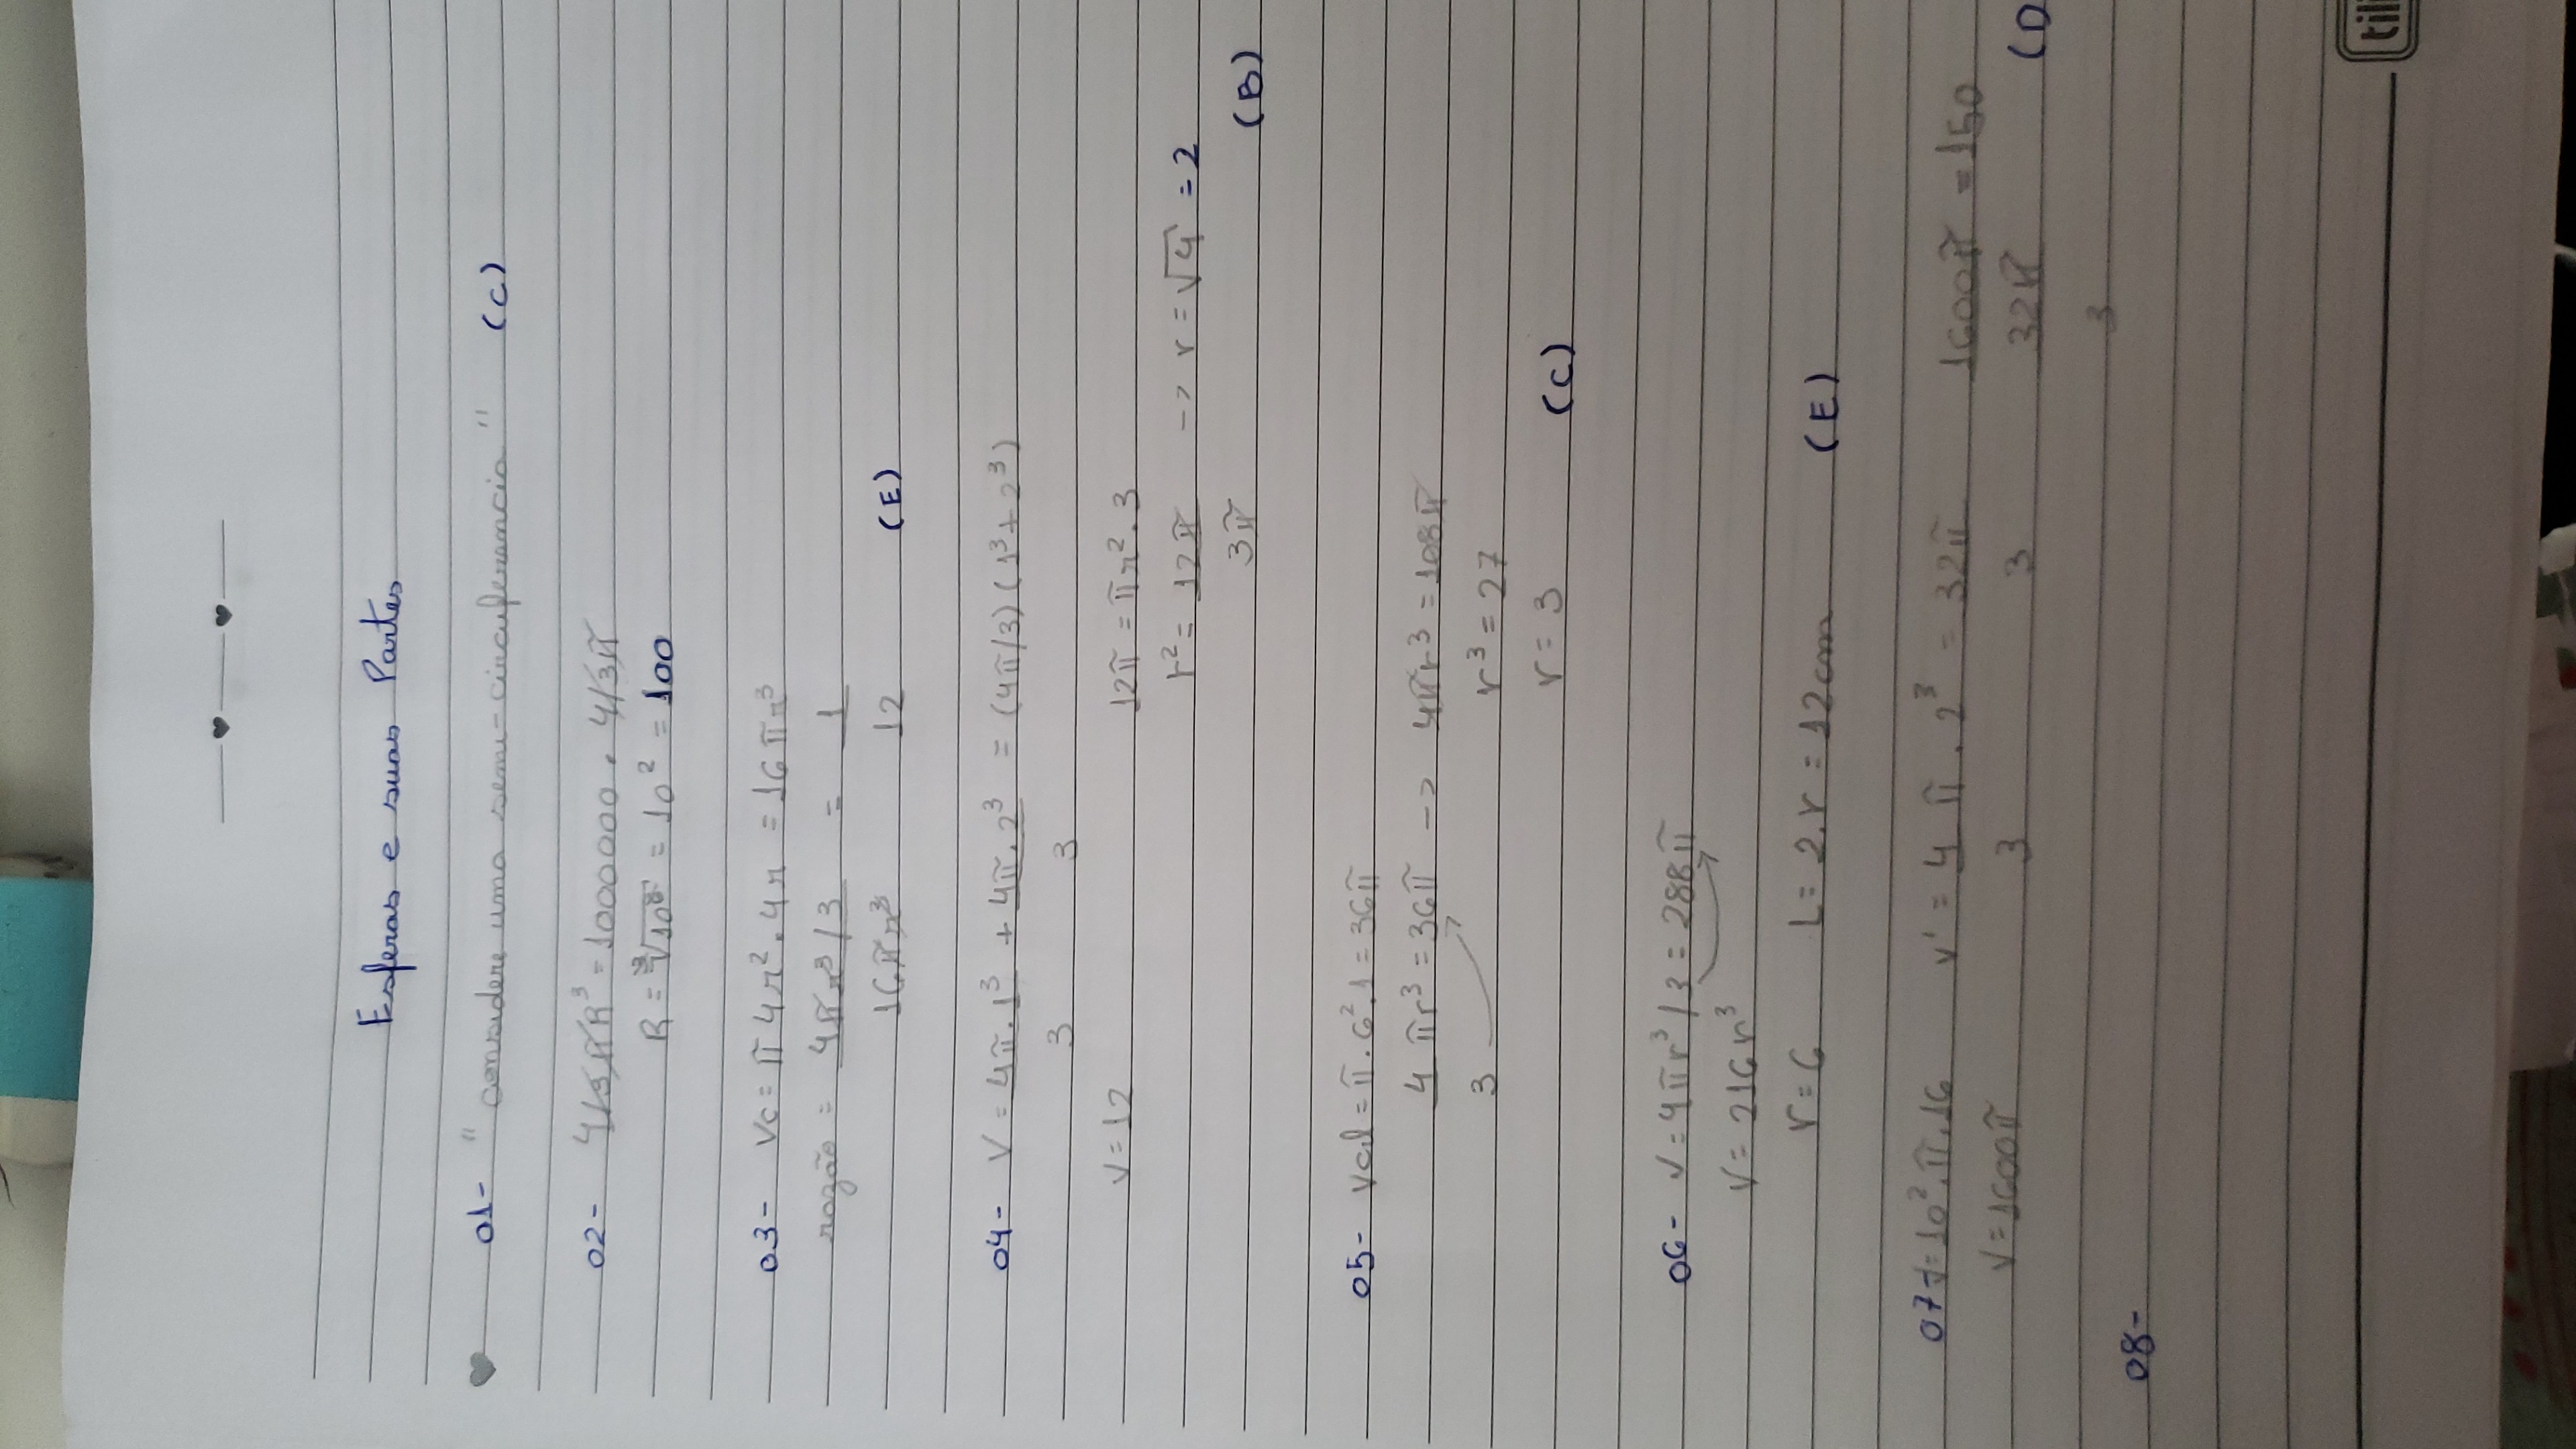 Esferas e suas Partes
01- "considere uma semi-circuferencia" (C)
02- 4/3πR³ = 1000000 . 4/3π
R = ³√10⁶ = 10² = 100
03- Vc = π4r².4r = 16πr³
razão = 4πr³/3 = 1
16πr³ 12 (E)
04- V = 4π.1³ + 4π.2³ = (4π/3)(1³+2³)
3 3
V=12 12π = πr².3
r² = 12π -> r = √4 = 2
3π (B)
05- Vcil = π.6².1 = 36π
4 πr³ = 36π -> 4πr³ = 108π
3 r³ = 27
r = 3 (C)
06- V = 4πr³/3 = 288π
V = 216r³
r = 6 L = 2.r = 12cm (E)
07- V = 10².π.16 V' = 4 π . 2³ = 32π 1600π = 150
V = 1600π 3 3 32π (D
3
08-
til